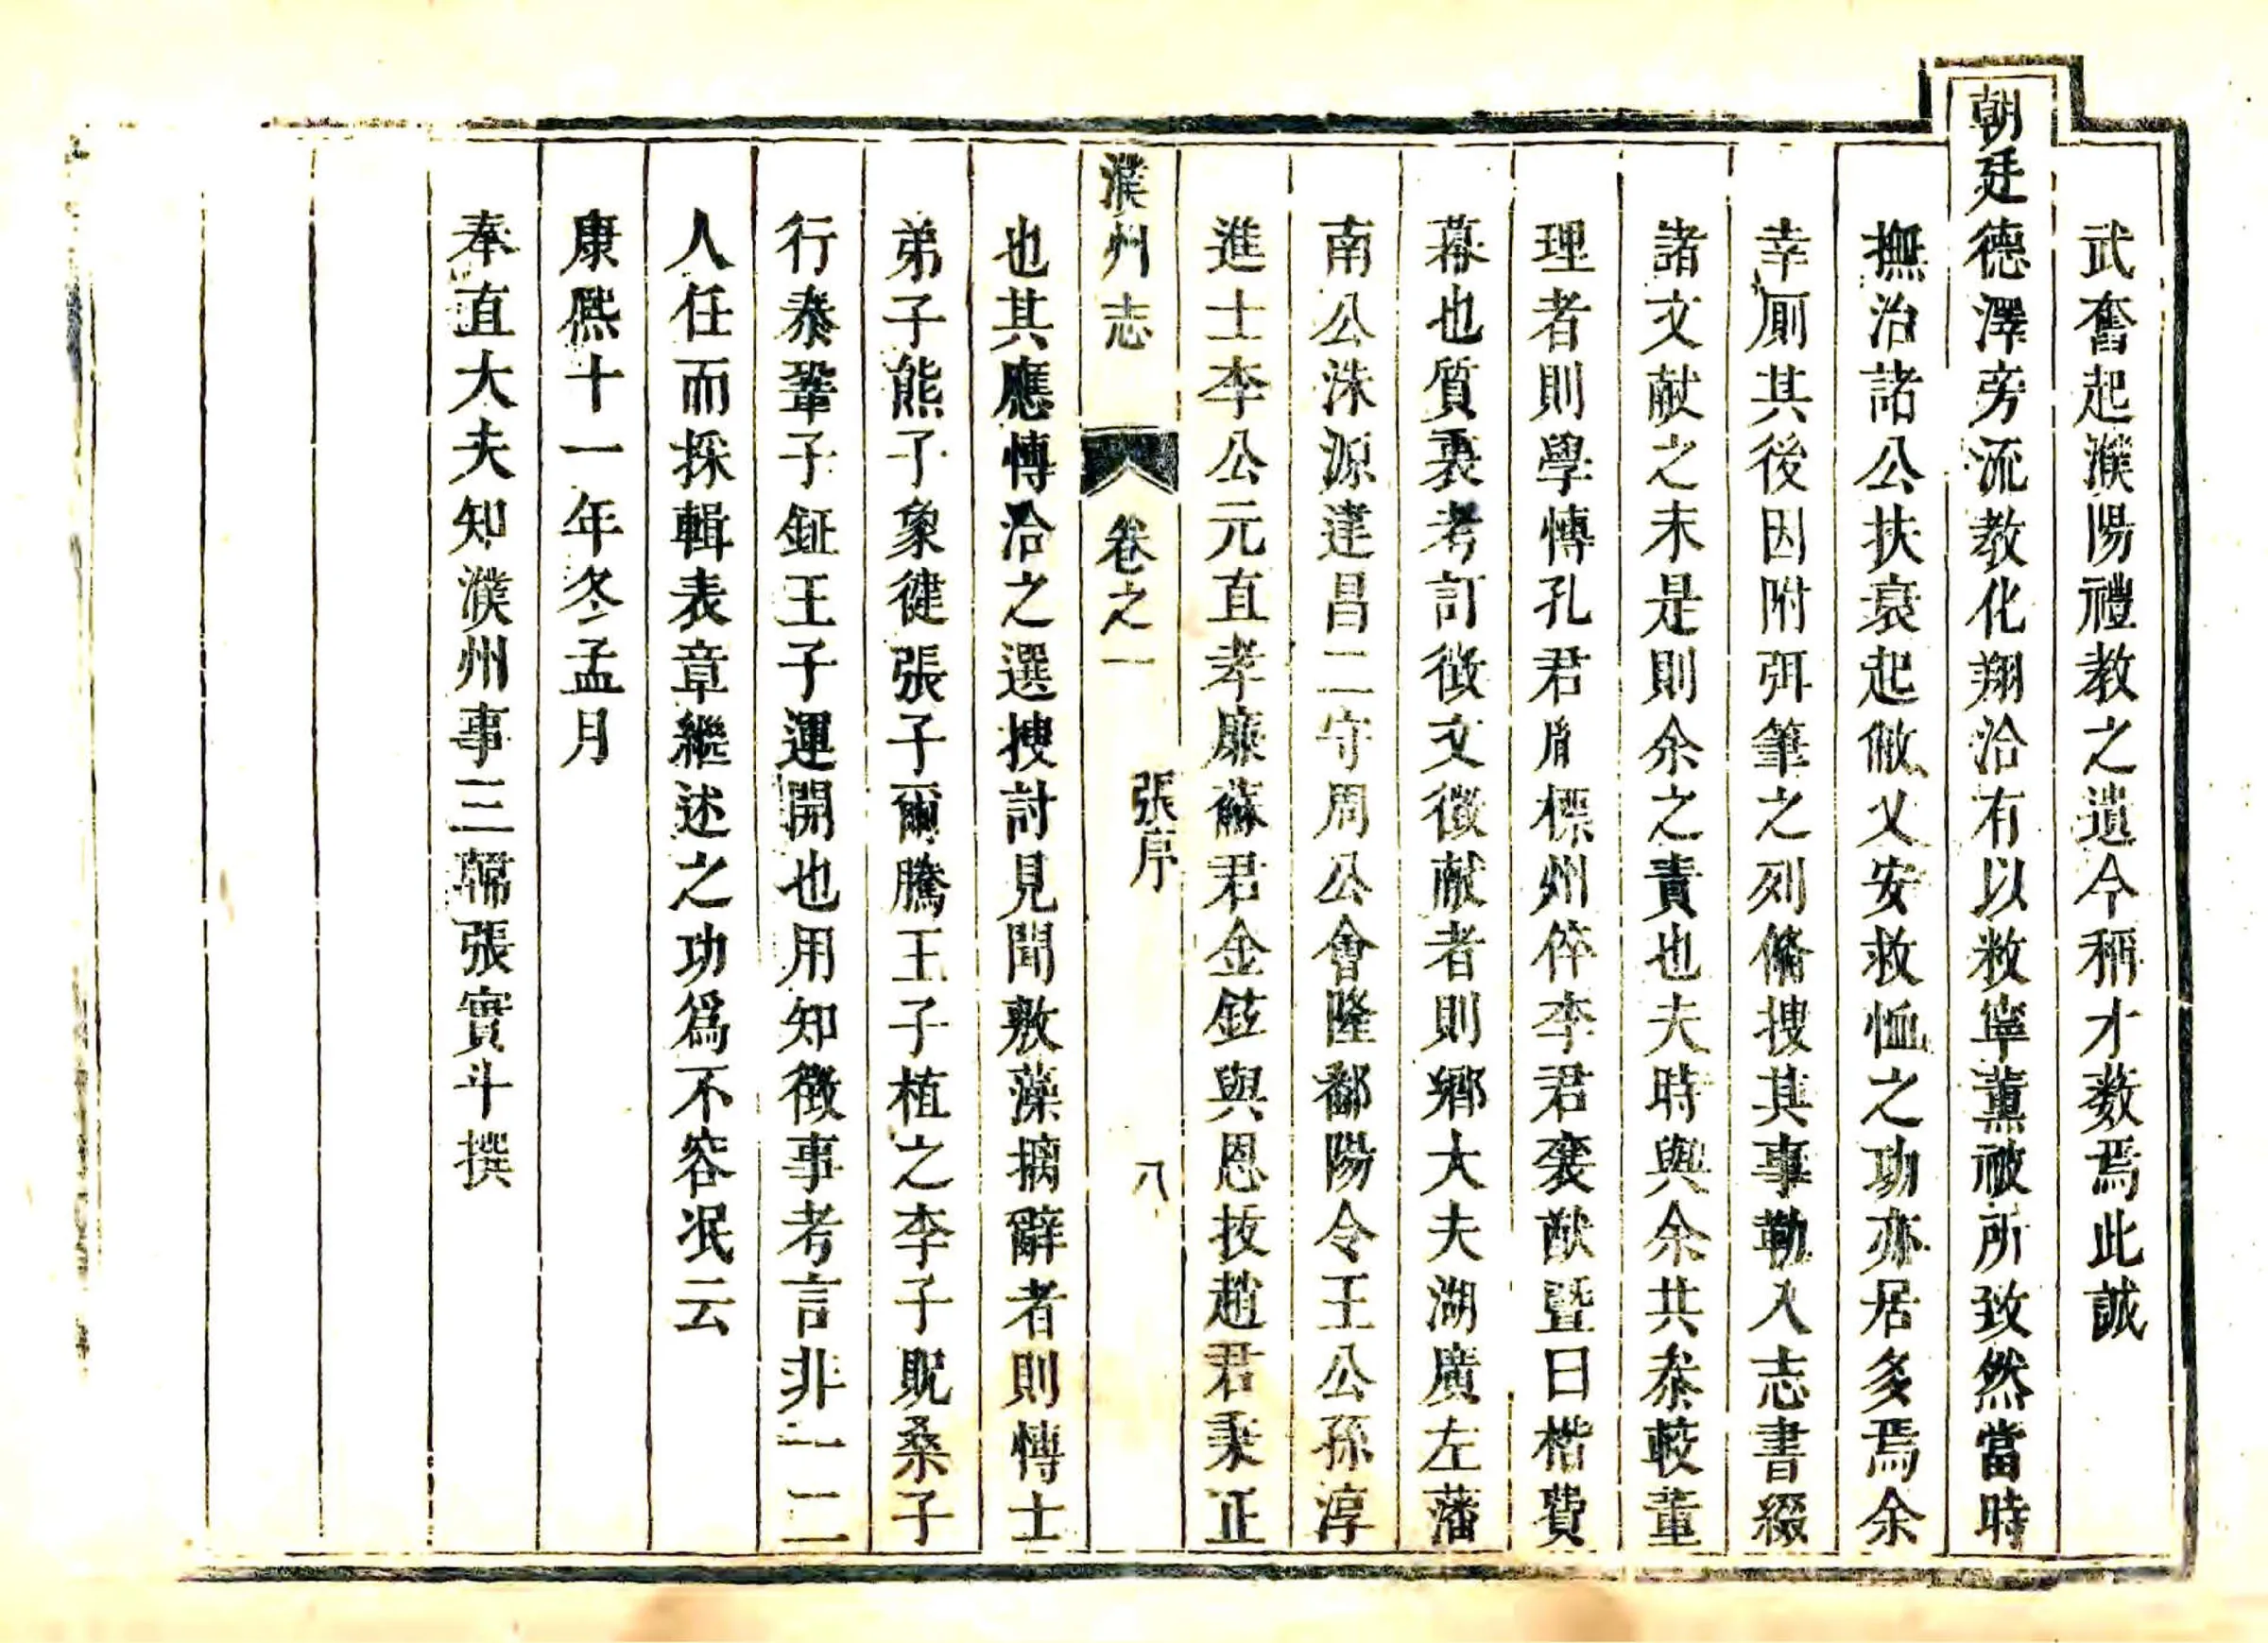 武奮起濮陽禮教之遺今稱才藪焉此誠
朝廷德澤旁流教化翔洽有以敉寧薰被所致然當時
撫治諸公扶衰起敝乂安救恤之功亦居多焉余
幸厠其後因附弭筆之列脩搜其事勒入志書綴
諸文献之末是則余之責也夫時與余共叅較董
理者則學博孔君胤標州倅李君裦猷暨日楷費
幕也質裏考訂徴文徴献者則鄉大夫湖廣左藩
南公洙源達昌二守周公會隆鄱陽令王公孫淳
進士李公元直孝廉蘇君金鉉與恩拔趙君秉正
濮州志 卷之一 張序 八
也其應博洽之選搜討見聞敷藻摛辭者則博士
弟子熊子象徤張子爾騰王子植之李子貺桑子
行泰鞏子鉦王子運開也用知徴事考言非一二
人任而採輯表章繼述之功爲不容泯云
康熈十一年冬孟月
奉直大夫知濮州事三韓張實斗撰